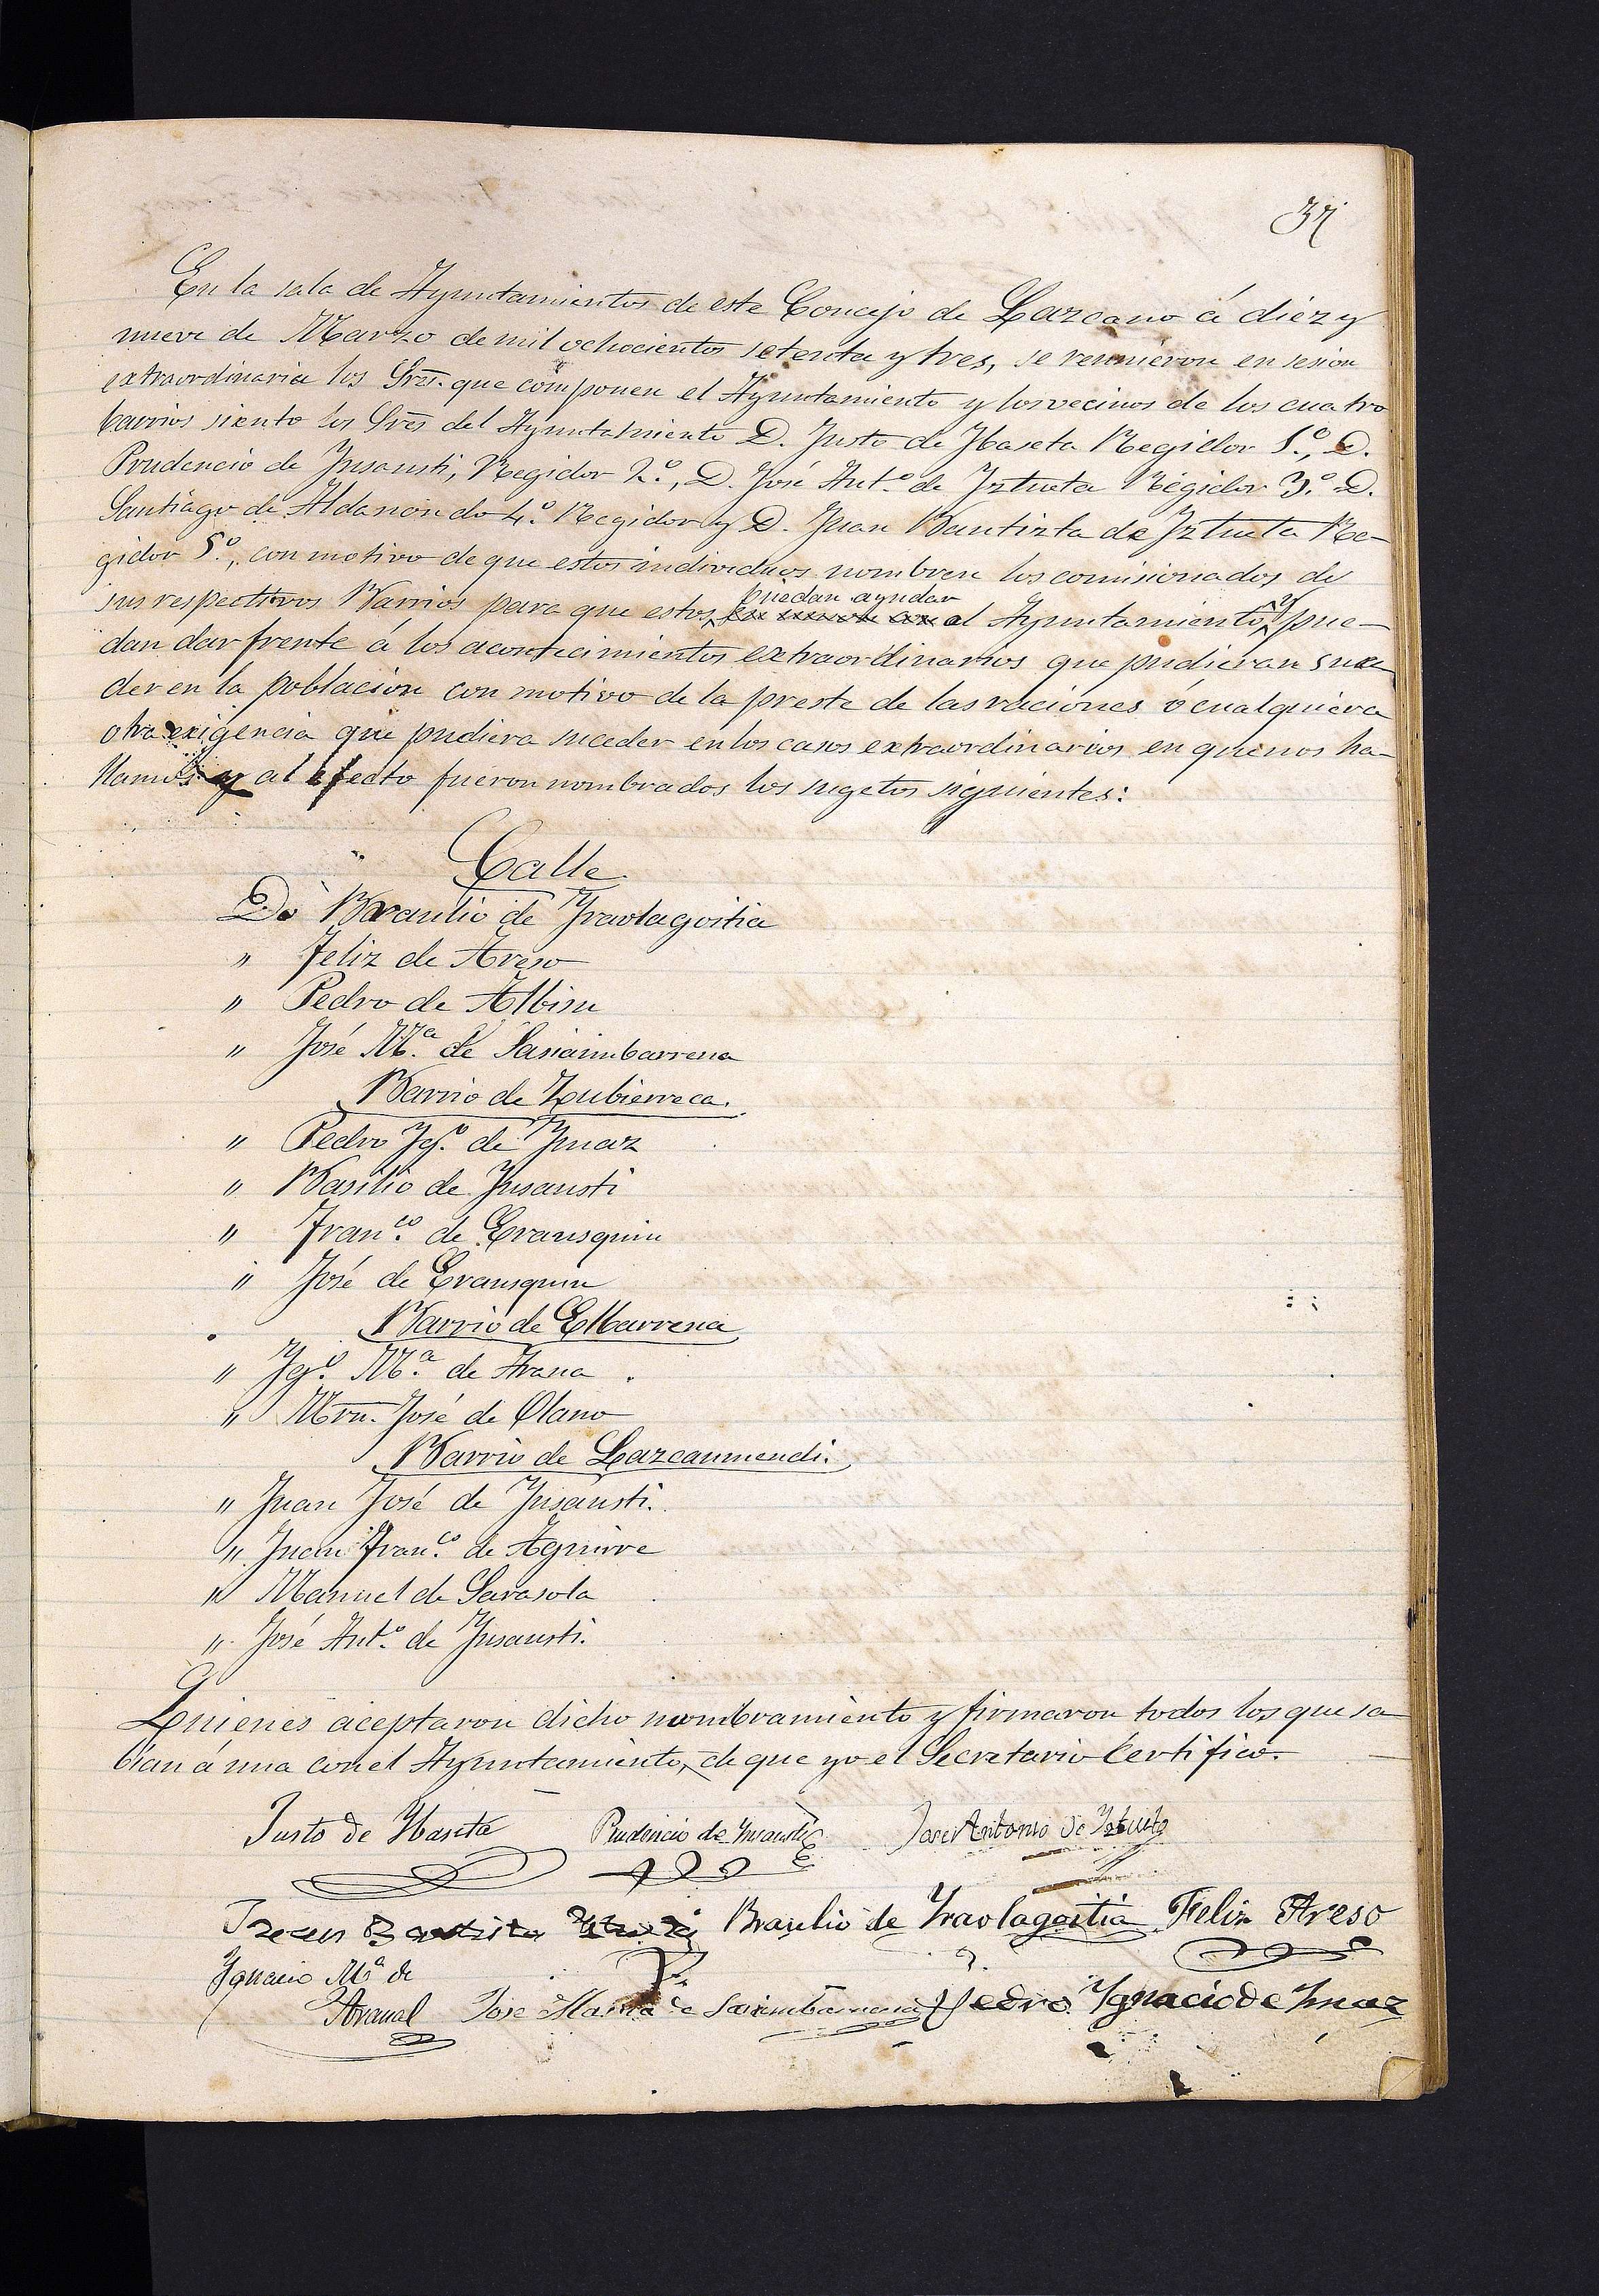 37
En la sala de Ayuntamientos de este Concejo de Lazcano á diez y
nueve de Marzo de mil ochocientos setenta y tres, se reunieron en sesion
extraordinaria los Sres. que componen el Ayuntamiento y los vecinos de los cuatro
barrios siento los Sres del Ayuntamiento D. Justo de Ybaseta Regidor 1.º, D.
Prudencio de Ynsausti, Regidor 2.º, D. José Ant.º de Yztueta Regidor 3.º D.
Santiago de Aldanondo 4.º Regidor y D. Juan Bautizta de Yztueta Re-
gidor 5.º, con motivo de que estos individuos nombren los comisionados de
sus respectivos Barrios para que estos puedan ayudar al Ayuntamiento y pue-
dan dar frente á los acontecimientos extraordinarios que pudieran suce
der en la poblacion con motivo de la preste de las raciones ó cualquiera
otra exigencia que pudiera suceder en los casos extraordinarios en que nos ha-
llamos y al efecto fueron nombrados los sugetos siguientes:
Calle
Dn Braulio de Yraolagoitia
" Feliz de Areso
" Pedro de Albisu
" José M.ª de Sasiaimbarrena
Barrio de Zubierreca.
" Pedro Yg.º de Ymaz
" Basilio de Ynsausti
" Fran.co de Erausquin
" José de Erausquin
Barrio de Elbarrena
" Yg.º M.ª de Arana
" Mrn. José de Olano
Barrio de Lazcanmendi.
" Juan José de Ynsausti.
" Juan Fran.co de Aguirre
" Manuel de Sarasola
" José Ant.º de Ynsausti.
Quienes aceptaron dicho nombramiento y firmaron todos los que sa
bian á una con el Ayuntamiento, de que yo el Secretario Certifico.
Justo de Ybaseta Prudencio de Ynsausti Jose Antonio de Yztueta
Juan Bautista Yztueta Braulio de Yraolagoitia Felix Areso
Ygnacio M.ª de
Arana Jose Maria de Sasiambarrena Pedro Ygnacio de Ymaz